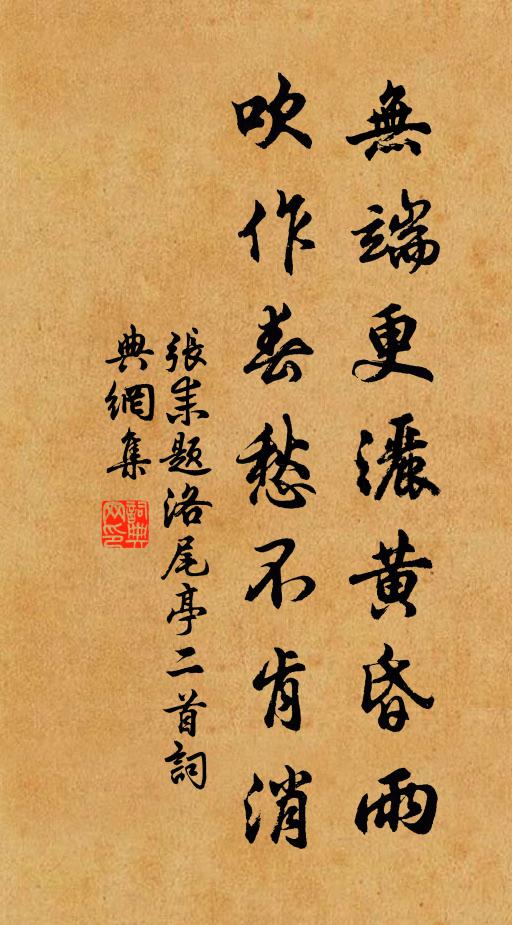 無端更灑黃昏雨
吹作春愁不肯消
張耒題洛尾亭二首詞
典網集
詞典网印